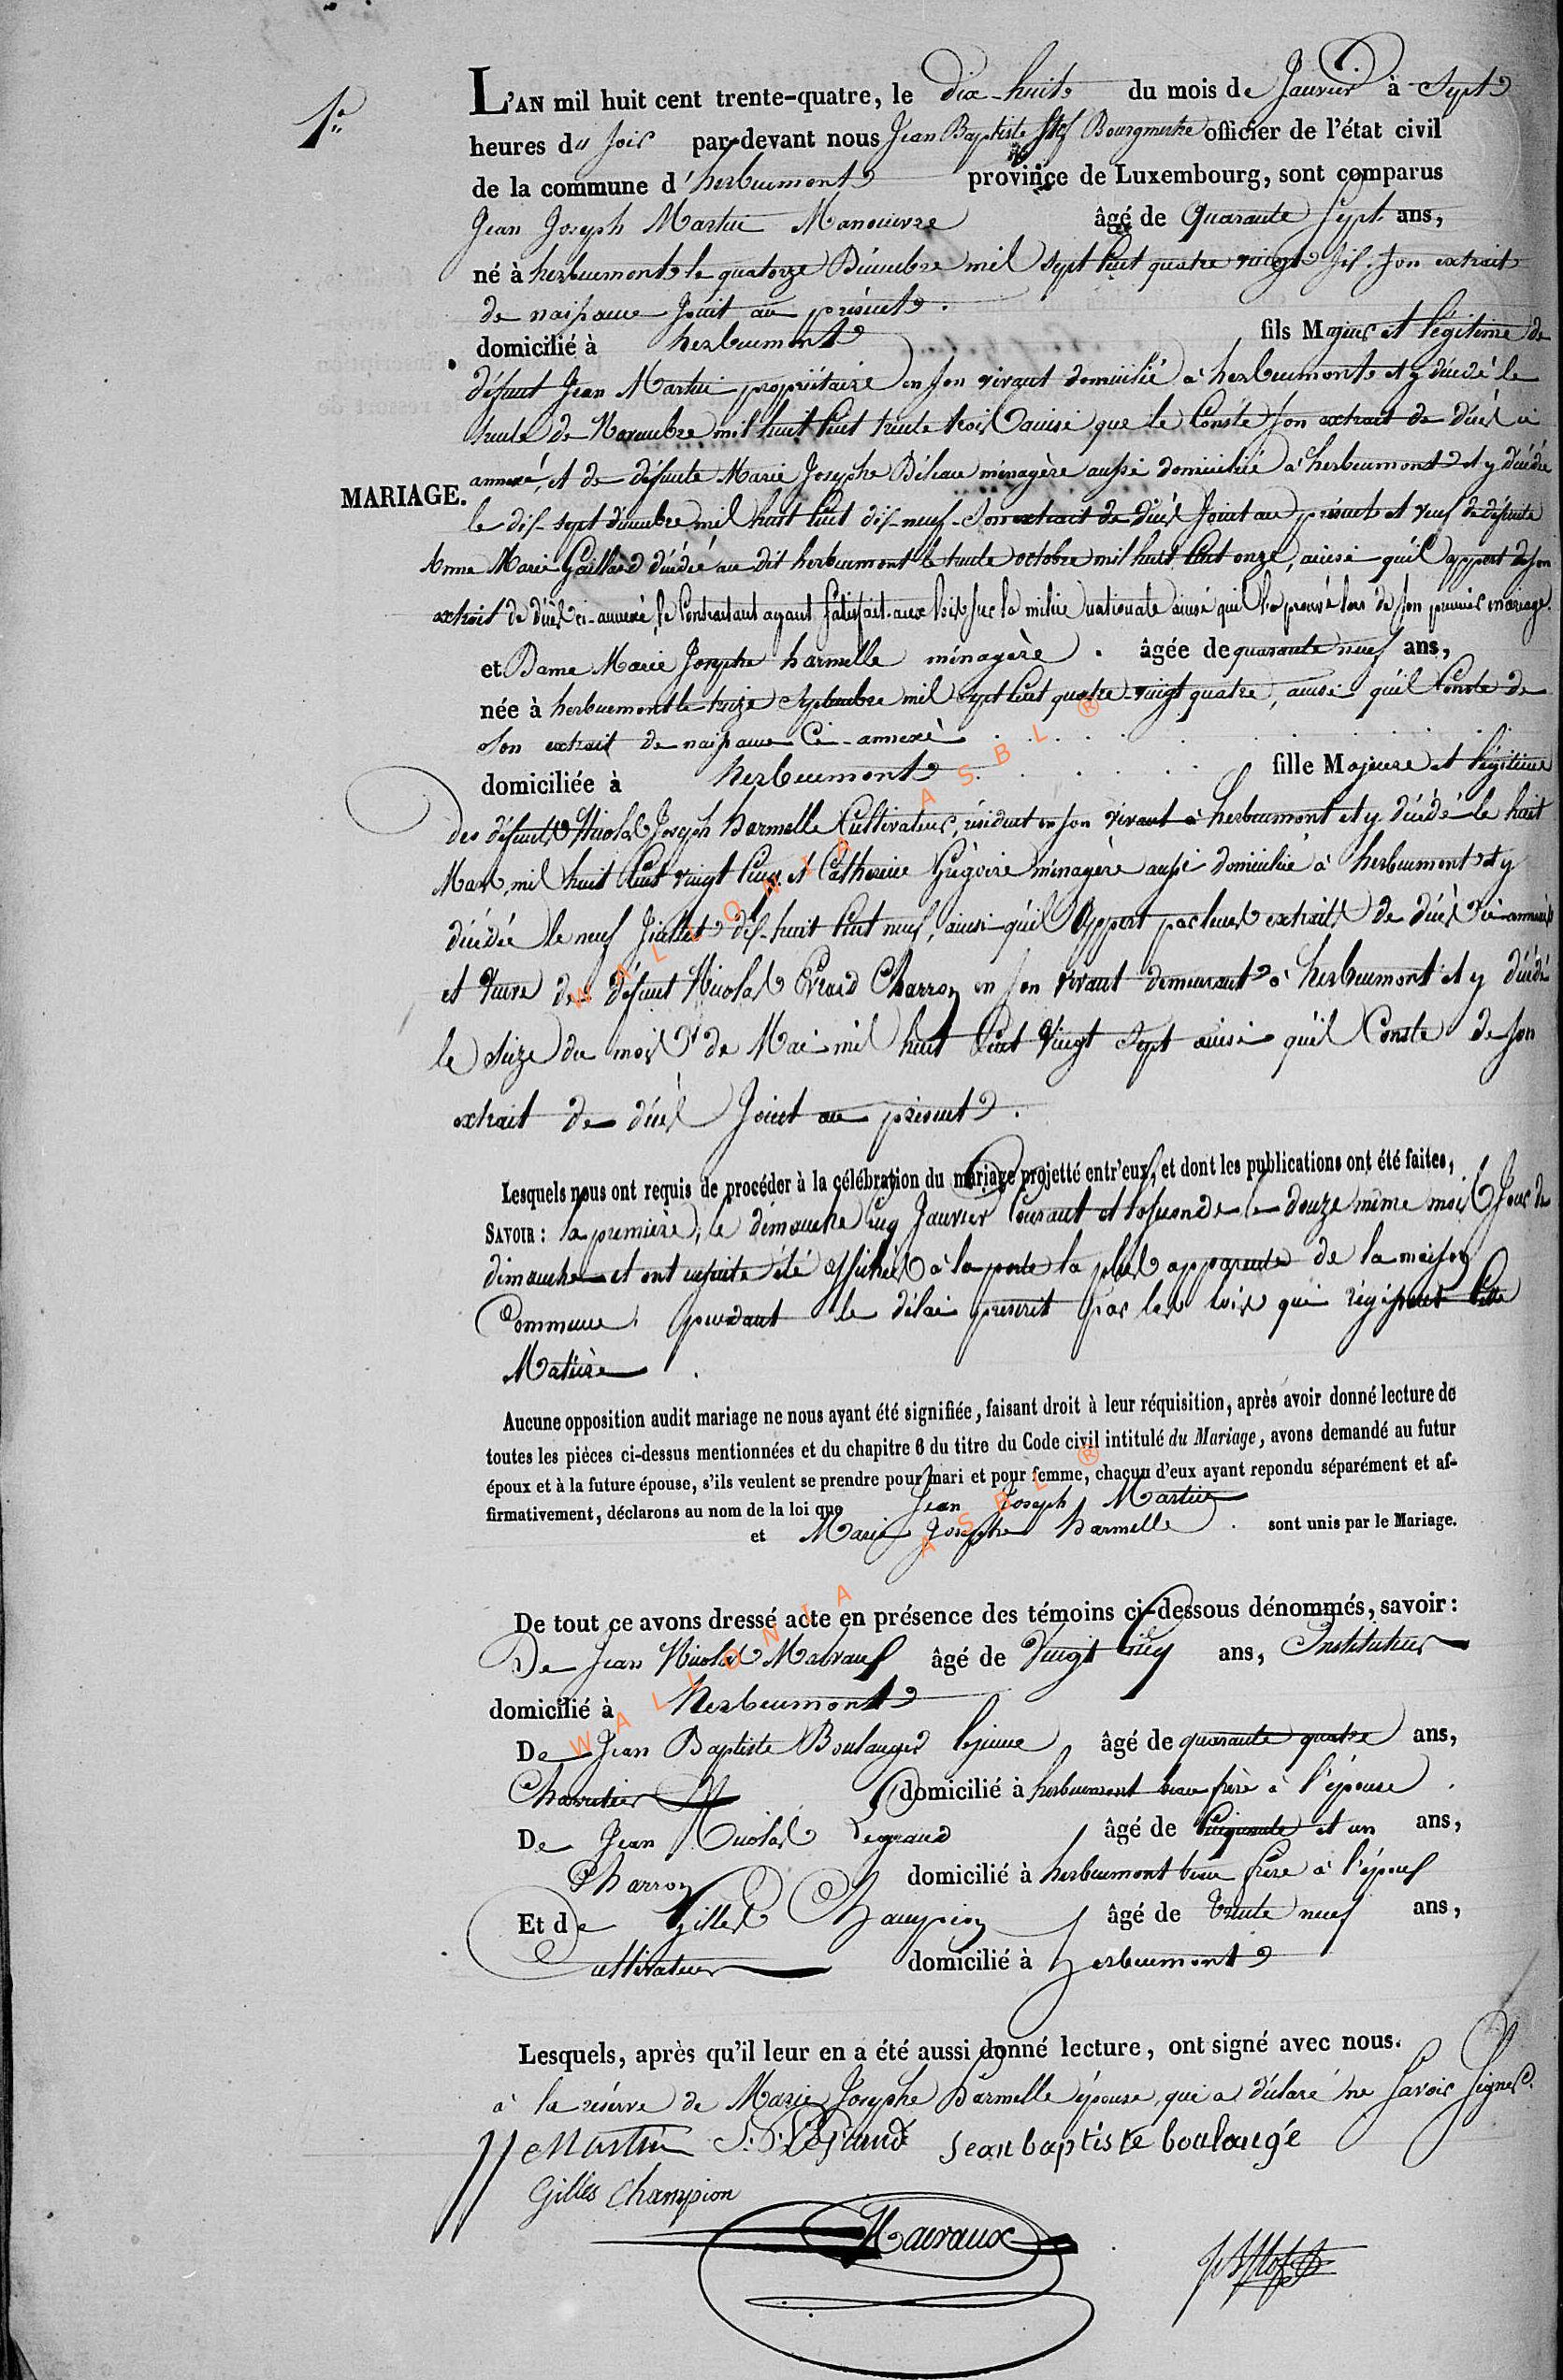 1er
L'AN mil huit cent trente-quatre, le dix-huit du mois de Janvier à Sept
heures du soir par-devant nous Jean Baptiste Bourgmestre officier de l'état civil
de la commune d'herbeumont province de Luxembourg, sont comparus
Jean Joseph Martin Manouvre âgé de Quarante Sept ans,
né à herbeumont le quatorze Décembre mil sept Cent quatre vingt Six. Son extrait
de naissance Joint au présent.
domicilié à herbeumont fils Majeur et légitime de
défunt Jean Martin propriétaire en son vivant domicilié à herbeumont et y décédé le
trente de Novembre mil huit Cent trente trois ainsi que le Conste son extrait de décès ci
annexé, et de défunte Marie Josephe Déleau ménagère aussi domiciliée à herbeumont et y décédée
MARIAGE.
le dix-sept décembre mil huit Cent dix-neuf son extrait de décès Joint au présent et veuf de défunte
Anne Marie Gaillard décédée au dit herbeumont le trente octobre mil huit Cent onze, ainsi qu'il appert de son
extrait de décès ci-annexé, le Contractant ayant satisfait aux lois sur la milice nationale ainsi qu'il l'a prouvé lors de son premier mariage.
et Dame Marie Josephe harmelle ménagère. âgée de quarante neuf ans,
née à herbeumont le treize Septembre mil sept Cent quatre-vingt quatre, ainsi qu'il Conste de
Son extrait de naissance Ci-annexé
domiciliée à herbeumont fille Majeure et légitime
des défunts Nicolas Joseph harmelle Cultivateur, résidant en son vivant à herbeumont et y décédé le huit
Mars mil huit Cent vingt Cinq et Catherine Grégoire ménagère aussi domiciliée à herbeumont et y
décédée le neuf Juillet dix-huit Cent neuf, ainsi qu'il Appert par leurs extraits de décès ci-annexés
et Veuve de défunt Nicolas Evrard Charron en son vivant demeurant à herbeumont et y décédé
le Seize du mois de Mai mil huit Cent Vingt Sept ainsi qu'il Conste de son
extrait de décès Joint au présent.
Lesquels nous ont requis de procéder à la célébration du mariage projetté entr'eux, et dont les publications ont été faites,
SAVOIR : la première, le dimanche Cinq Janvier Courant et la seconde le douze même mois Jour de
dimanche et ont ensuite été affichés à la porte la plus apparente de la maison
Commune pendant le délai prescrit par les lois qui régissent Cette
Matière.
Aucune opposition audit mariage ne nous ayant été signifiée, faisant droit à leur réquisition, après avoir donné lecture de
toutes les pièces ci-dessus mentionnées et du chapitre 6 du titre du Code civil intitulé du Mariage, avons demandé au futur
époux et à la future épouse, s'ils veulent se prendre pour mari et pour femme, chacun d'eux ayant repondu séparément et af-
firmativement, déclarons au nom de la loi que Jean Joseph Martin
et Marie Josephe harmelle. sont unis par le Mariage.
De tout ce avons dressé acte en présence des témoins ci-dessous dénommés, savoir :
De Jean Nicolas Mairaux âgé de Vingt Cinq ans, Instituteur
domicilié à Herbeumont
De Jean Baptiste Boulanger lejeune âgé de quarante quatre ans,
Charretier domicilié à herbeumont beau frère à l'épouse.
De Jean Nicolas Legrand âgé de Cinquante et un ans,
Charron domicilié à herbeumont beau frère à l'époux
Et de Gilles Champion âgé de trente neuf ans,
Cultivateur domicilié à herbeumont
Lesquels, après qu'il leur en a été aussi donné lecture, ont signé avec nous.
à la réserve de Marie Josephe harmelle épouse qui a déclaré ne savoir signer.
JJ Martin Legrand Jean baptiste boulangé
Gilles Champion
Mairaux
WALLONIA ASBL ®
WALLONIA ASBL ®